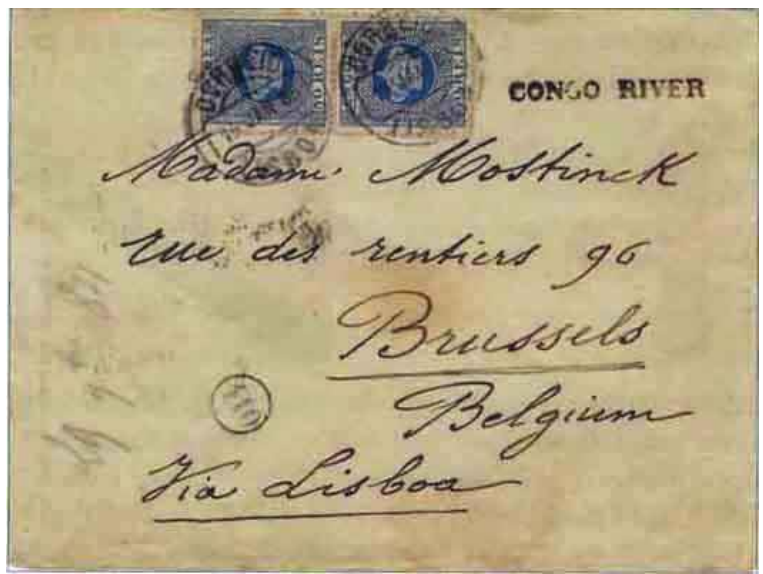 50 REIS
CONGO RIVER
Madame Mostinck
rue des rentiers 96
Brussels
Belgium
Via Lisboa